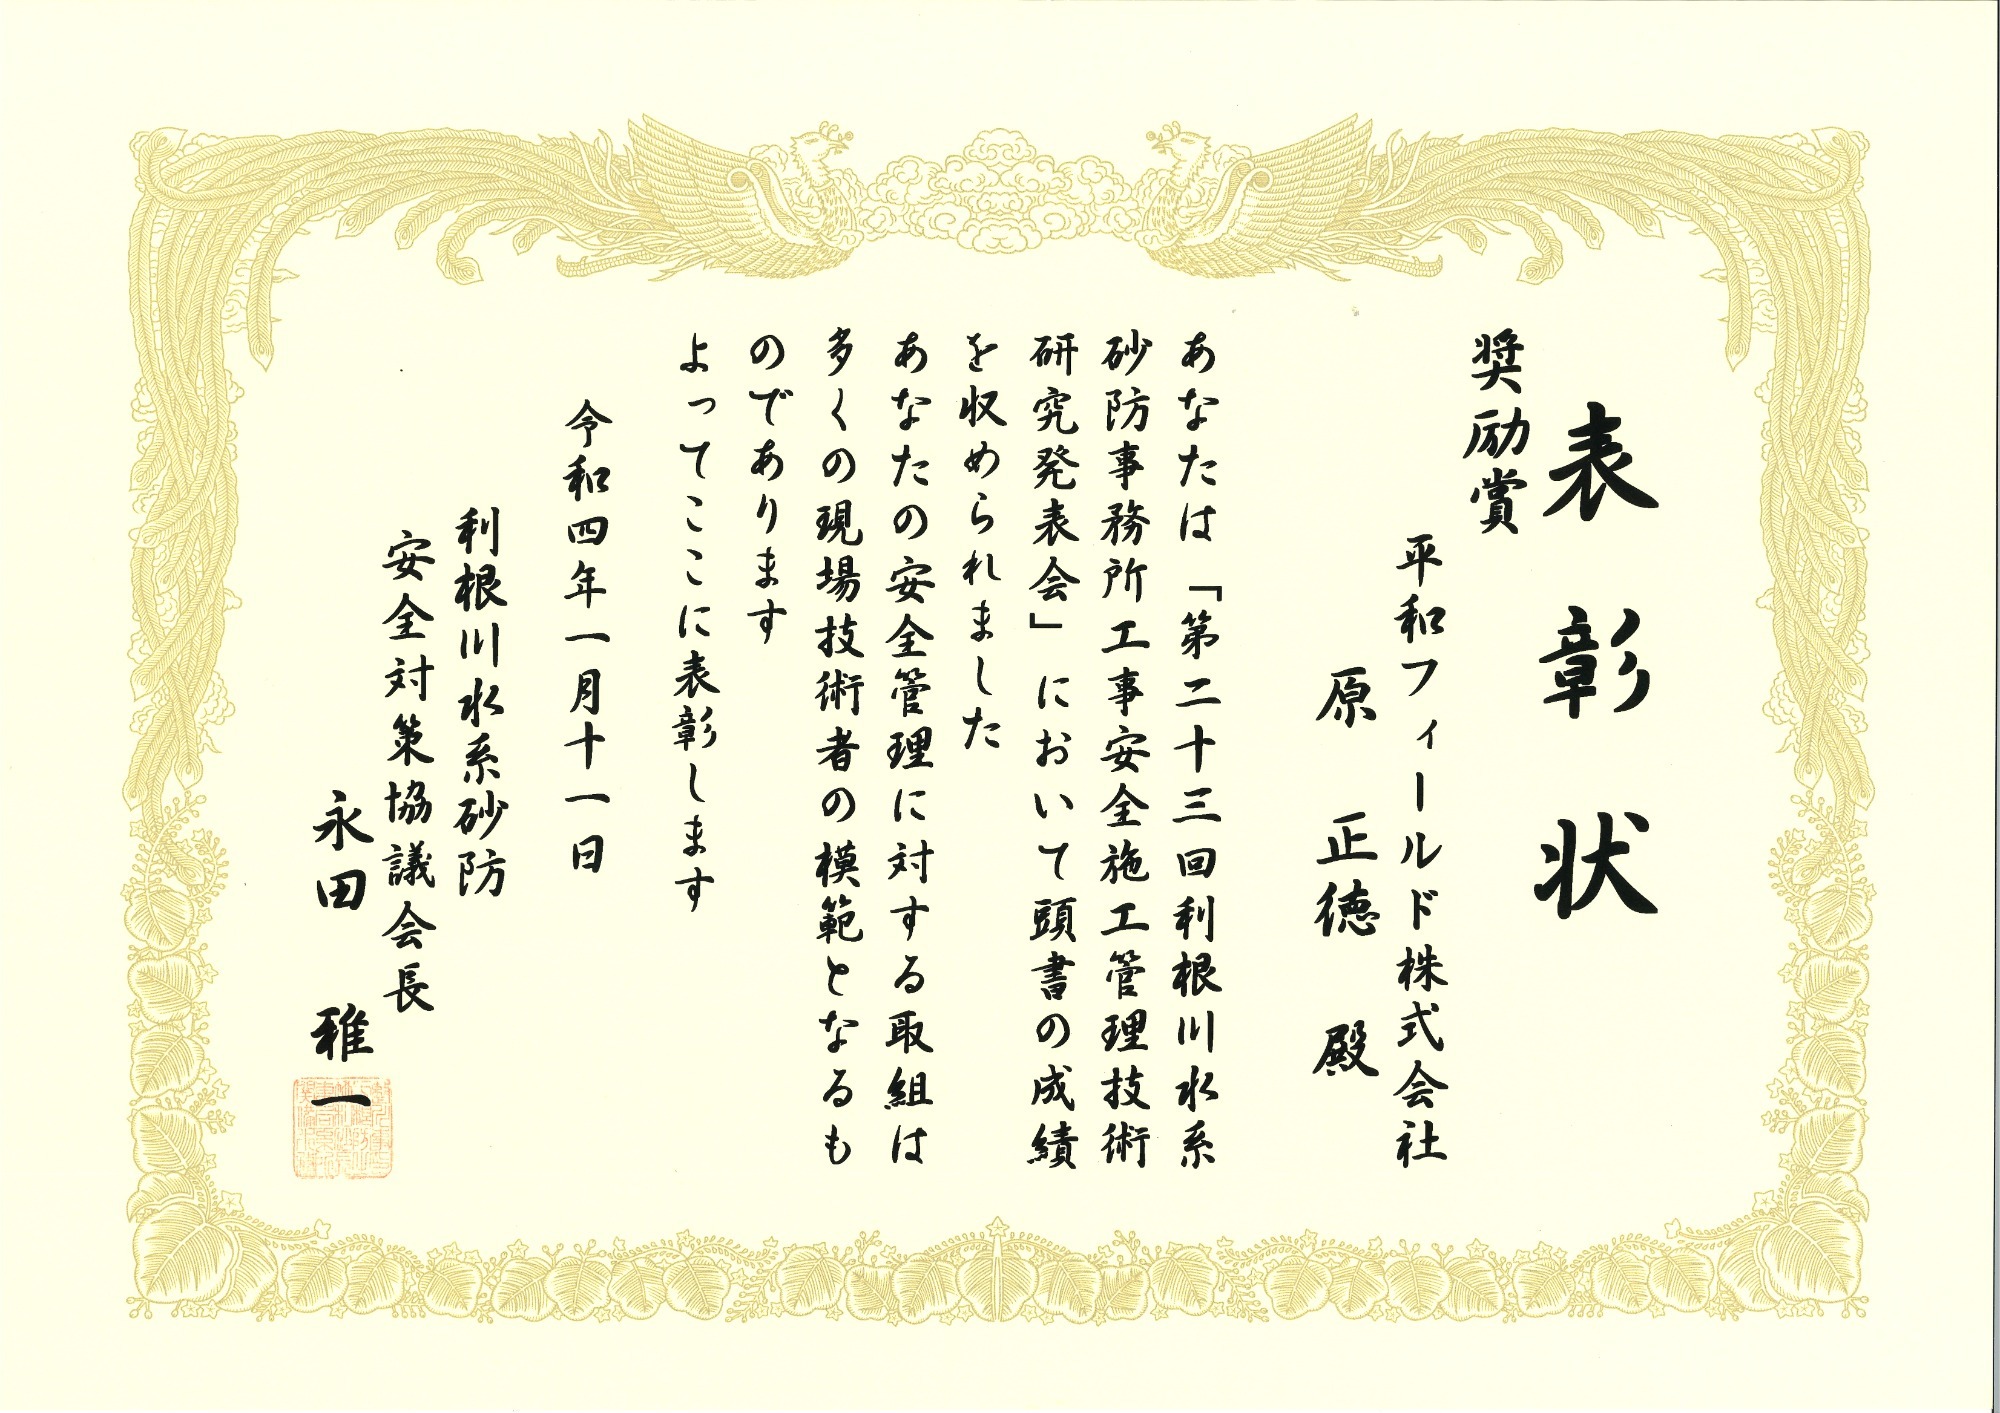 表彰状
奨励賞
平和フィールド株式会社
原 正徳 殿
あなたは「第二十三回利根川水系
砂防事務所工事安全施工管理技術
研究発表会」において頭書の成績
を収められました
あなたの安全管理に対する取組は
多くの現場技術者の模範となるも
のであります
よってここに表彰します
令和四年一月十一日
利根川水系砂防
安全対策協議会長
永田 雅一